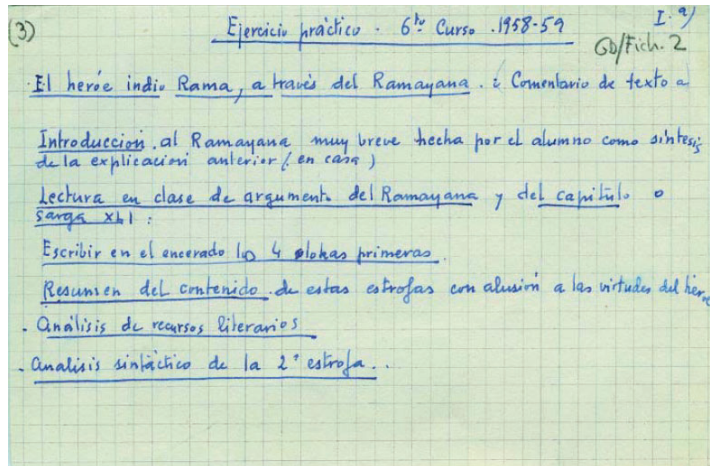 (3) Ejercicio práctico - 6to Curso. 1958-59 I. a)
GD/Fich. 2
El heróe indio Rama, a través del Ramayana. : Comentario de texto a
Introduccion al Ramayana muy breve hecha por el alumno como síntesis
de la explicacion anterior (en casa)
Lectura en clase de argumento del Ramayana y del capítulo o
Sarga XLI :
Escribir en el encerado los 4 slokas primeras.
Resumen del contenido de estas estrofas con alusión a las virtudes del héroe
. Análisis de recursos literarios
. Analisis sintáctico de la 2ª estrofa. .